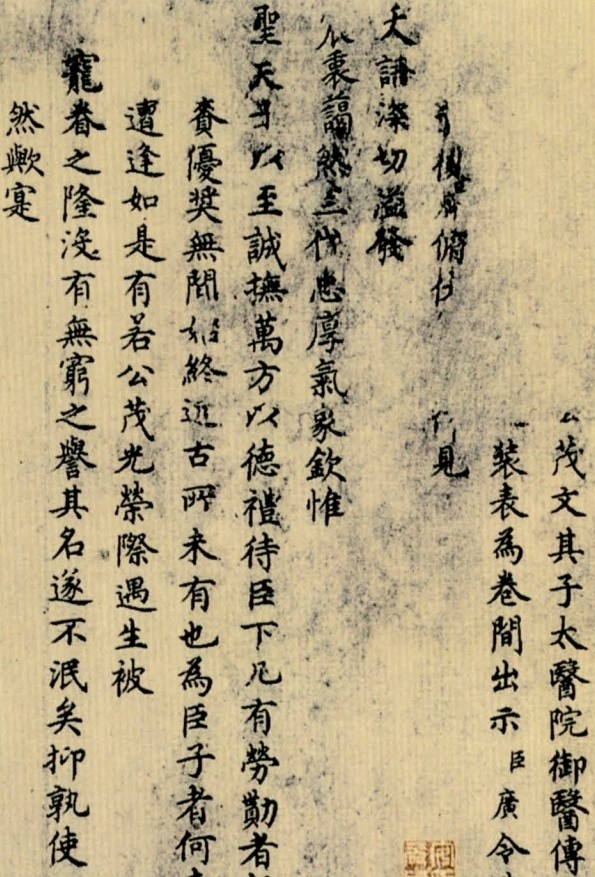 茂文其子太醫院御醫傳
裝表為卷間出示臣廣令
後 俯 見
天語深切溢發
衷藹然三代忠厚氣象欽惟
聖天子以至誠撫萬方以德禮待臣下凡有勞勩者
賚優奬無間始終近古所未有也為臣子者何
遭逢如是有若公茂光榮際遇生被
寵眷之隆沒有無窮之譽其名遂不泯矣抑孰使
然歟寔